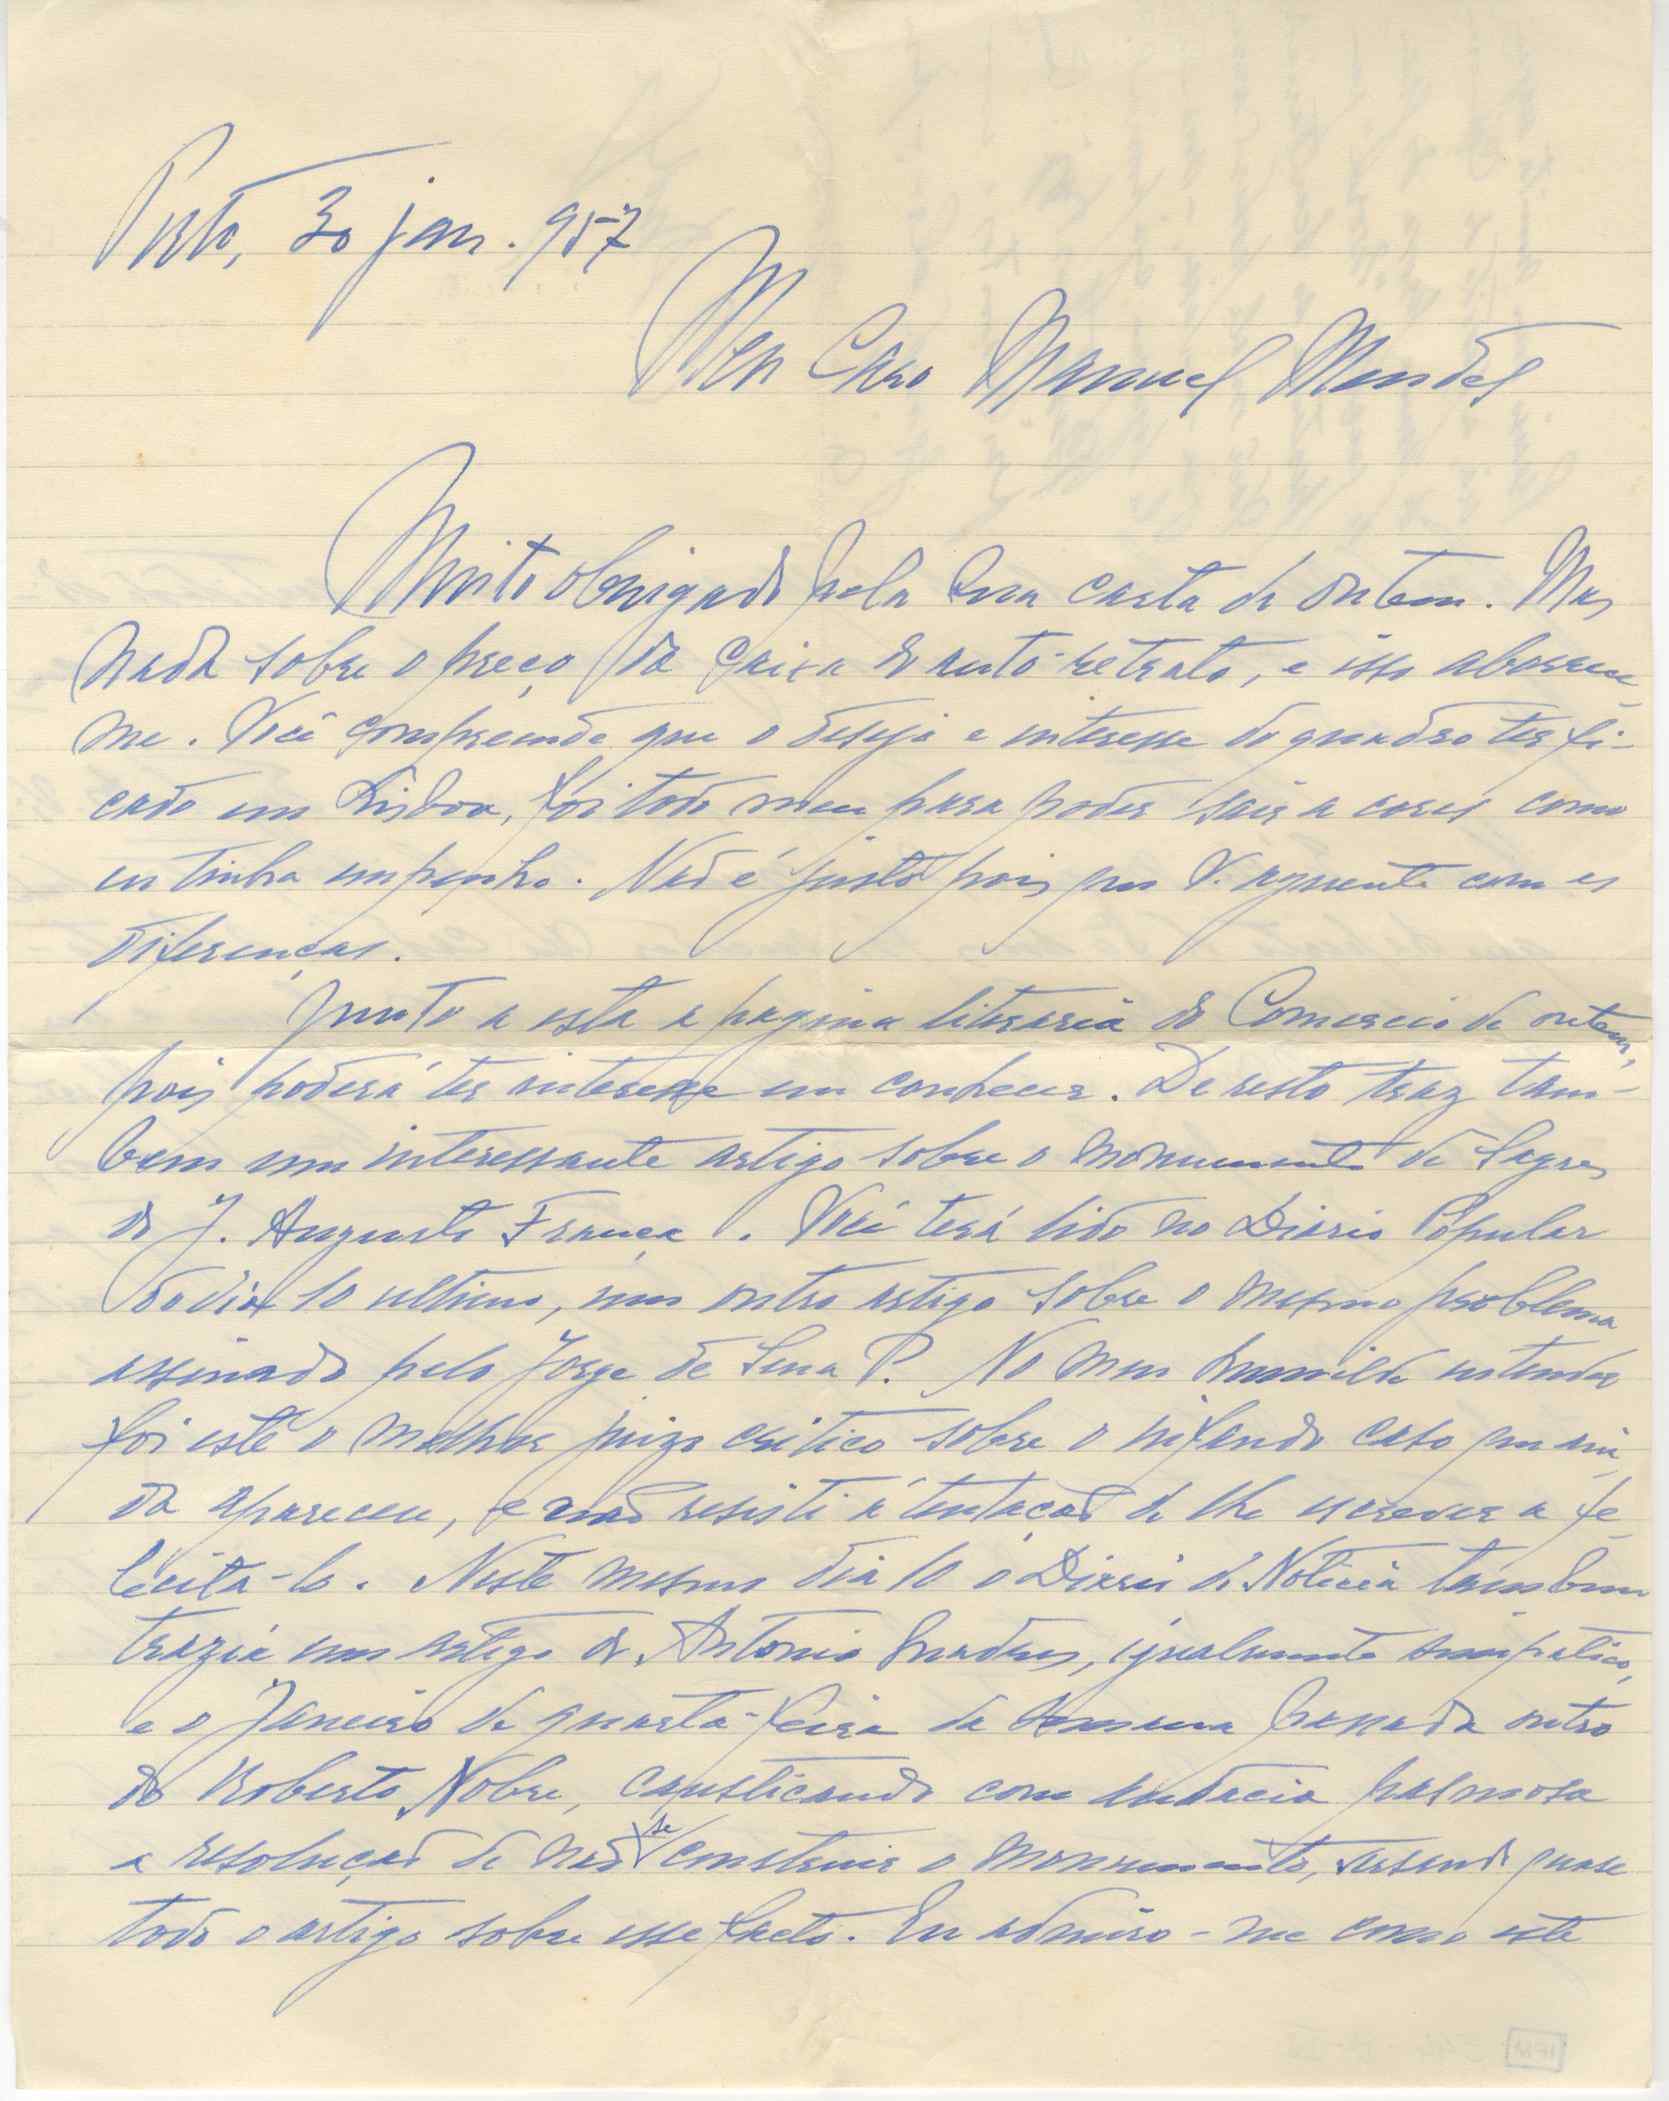 Porto, 30 jan. 957
Meu Caro Manuel Mendes
Muito obrigado pela sua carta de ontem. Mas
nada sobre o preço da caixa do auto-retrato, e isso aborrece-
me. Você compreende que o desejo e interesse do quadro ter fi-
cado em Lisboa, foi todo meu para poder sair a cores como
eu tinha empenho. Não é justo pois que V. aguente com as
diferenças.
Junto a esta a pagina literaria do Comercio de ontem,
pois poderá ter interesse em conhecer. De resto traz tam-
bem um interessante artigo sobre o monumento de Sagres
do J. Augusto França. Você terá lido no Diario Popular
do dia 10 ultimo, um outro artigo sobre o mesmo problema
assinado pelo Jorge de Sena?. No meu humilde entender
foi este o melhor juizo critico sobre o nefando caso que ain-
da apareceu, e não resisti á tentação de lhe escrever a fe-
licita-lo. Neste mesmo dia 10 o Diario de Noticia tambem
trazia um artigo de Antonio Quadros, igualmente simpatico,
e o Janeiro de quarta-feira da semana passada outro
do Roberto Nobre, causticando com audacia pasmosa
a resolução de não se construir o monumento, versando quase
todo o artigo sobre esse facto. Eu admiro-me como este